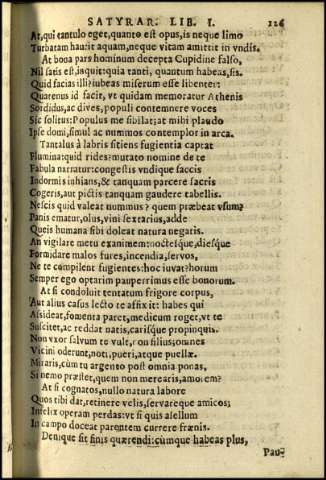 SATYRAR. LIB. I. 126
At, qui tantulo eget, quanto est opus, is neque limo
Turbatam haurit aquam, neque vitam amittit in vndis.
At bona pars hominum decepta Cupidine falso,
Nil satis est, inquit: quia tanti, quantum habeas, sis.
Quid facias illi? iubeas miserum esse libenter:
Quatenus id facit, vt quidam memoratur Athenis
Sordidus, ac dives, populi contemnere voces
Sic solitus: Populus me sibilat; at mihi plaudo
Ipse domi, simul ac nummos contemplor in arca.
Tantalus à labris sitiens fugientia captat
Flumina: quid rides? mutato nomine de te
Fabula narratur: congestis vndique saccis
Indormis inhians, & tanquam parcere sacris
Cogeris, aut pictis tanquam gaudere tabellis.
Nescis quid valeat nummus? quem præbeat vsum?
Panis ematur, olus, vini sextarius, adde
Queis humana sibi doleat natura negatis.
An vigilare metu exanimem: noctesque, diesque
Formidare malos fures, incendia, servos,
Ne te compilent fugientes: hoc iuvat? horum
Semper ego optarim pauperrimus esse bonorum.
At si condoluit tentatum frigore corpus,
Aut alius casus lecto te affixit: habes qui
Assideat, fomenta paret, medicum roget, vt te
Suscitet, ac reddat natis, carisque propinquis.
Non vxor salvum te vult, non filius; omnes
Vicini oderunt, noti, pueri, atque puellæ.
Miraris, cùm tu argento post omnia ponas,
Si nemo præstet, quem non mercearis, amorem?
At si cognatos, nullo natura labore
Quos tibi dat, retinere velis, servareque amicos;
Infelix operam perdas: vt si quis asellum
In campo doceat parentem currere frænis.
Denique sit finis quærendi: cùmque habeas plus,
Pau-